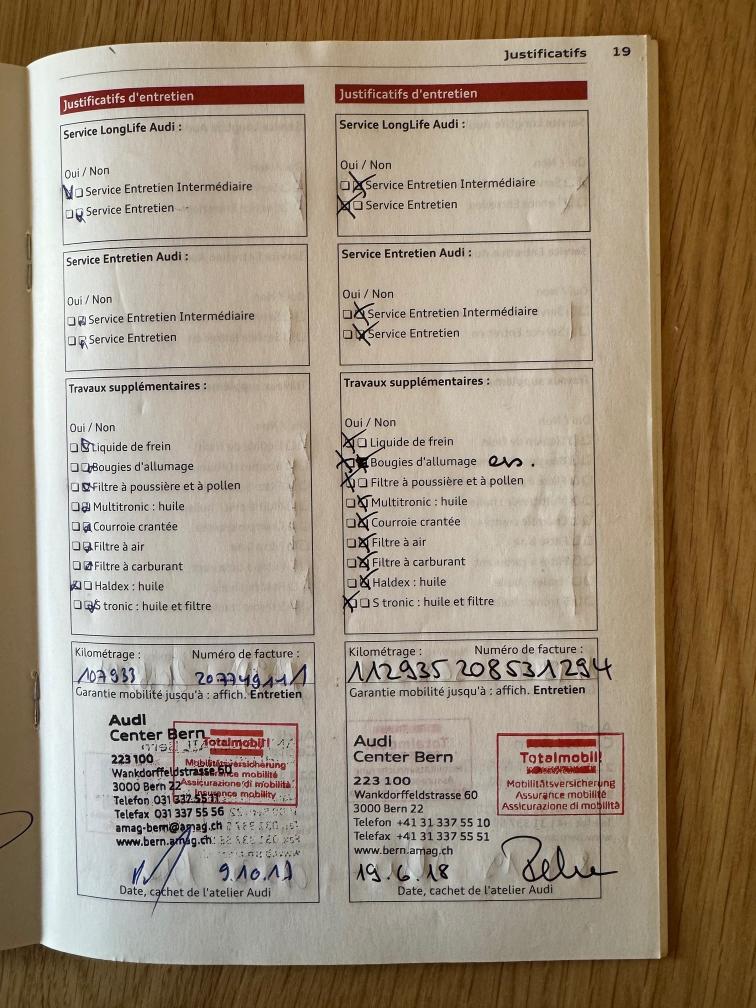 Justificatifs 19
Justificatifs d'entretien
Service LongLife Audi :
Oui / Non
Service Entretien Intermédiaire
Service Entretien
Service Entretien Audi :
Oui / Non
Service Entretien Intermédiaire
Service Entretien
Travaux supplémentaires :
Oui / Non
Liquide de frein
Bougies d'allumage
Filtre à poussière et à pollen
Multitronic : huile
Courroie crantée
Filtre à air
Filtre à carburant
Haldex : huile
S tronic : huile et filtre
Kilométrage : Numéro de facture :
107933
Garantie mobilité jusqu'à : affich. Entretien
Audi
Center Bern
Totalmobil!
223 100
Mobilitätsversicherung
Wankdorffeldstrasse 60
Assurance mobilité
3000 Bern 22
Assicurazione di mobilità
Insurance mobility
Telefon 031 337 55 11
Telefax 031 337 55 56
amag-bern@amag.ch
www.bern.amag.ch
9.10.17
Date, cachet de l'atelier Audi
Justificatifs d'entretien
Service LongLife Audi :
Oui / Non
Service Entretien Intermédiaire
Service Entretien
Service Entretien Audi :
Oui / Non
Service Entretien Intermédiaire
Service Entretien
Travaux supplémentaires :
Oui / Non
Liquide de frein
Bougies d'allumage
Filtre à poussière et à pollen
Multitronic : huile
Courroie crantée
Filtre à air
Filtre à carburant
Haldex : huile
S tronic : huile et filtre
Kilométrage : Numéro de facture :
112935 208531294
Garantie mobilité jusqu'à : affich. Entretien
Audi
Center Bern
223 100
Wankdorffeldstrasse 60
3000 Bern 22
Telefon +41 31 337 55 10
Telefax +41 31 337 55 51
www.bern.amag.ch
Totalmobil!
Mobilitätsversicherung
Assurance mobilité
Assicurazione di mobilità
19.6.18
Date, cachet de l'atelier Audi